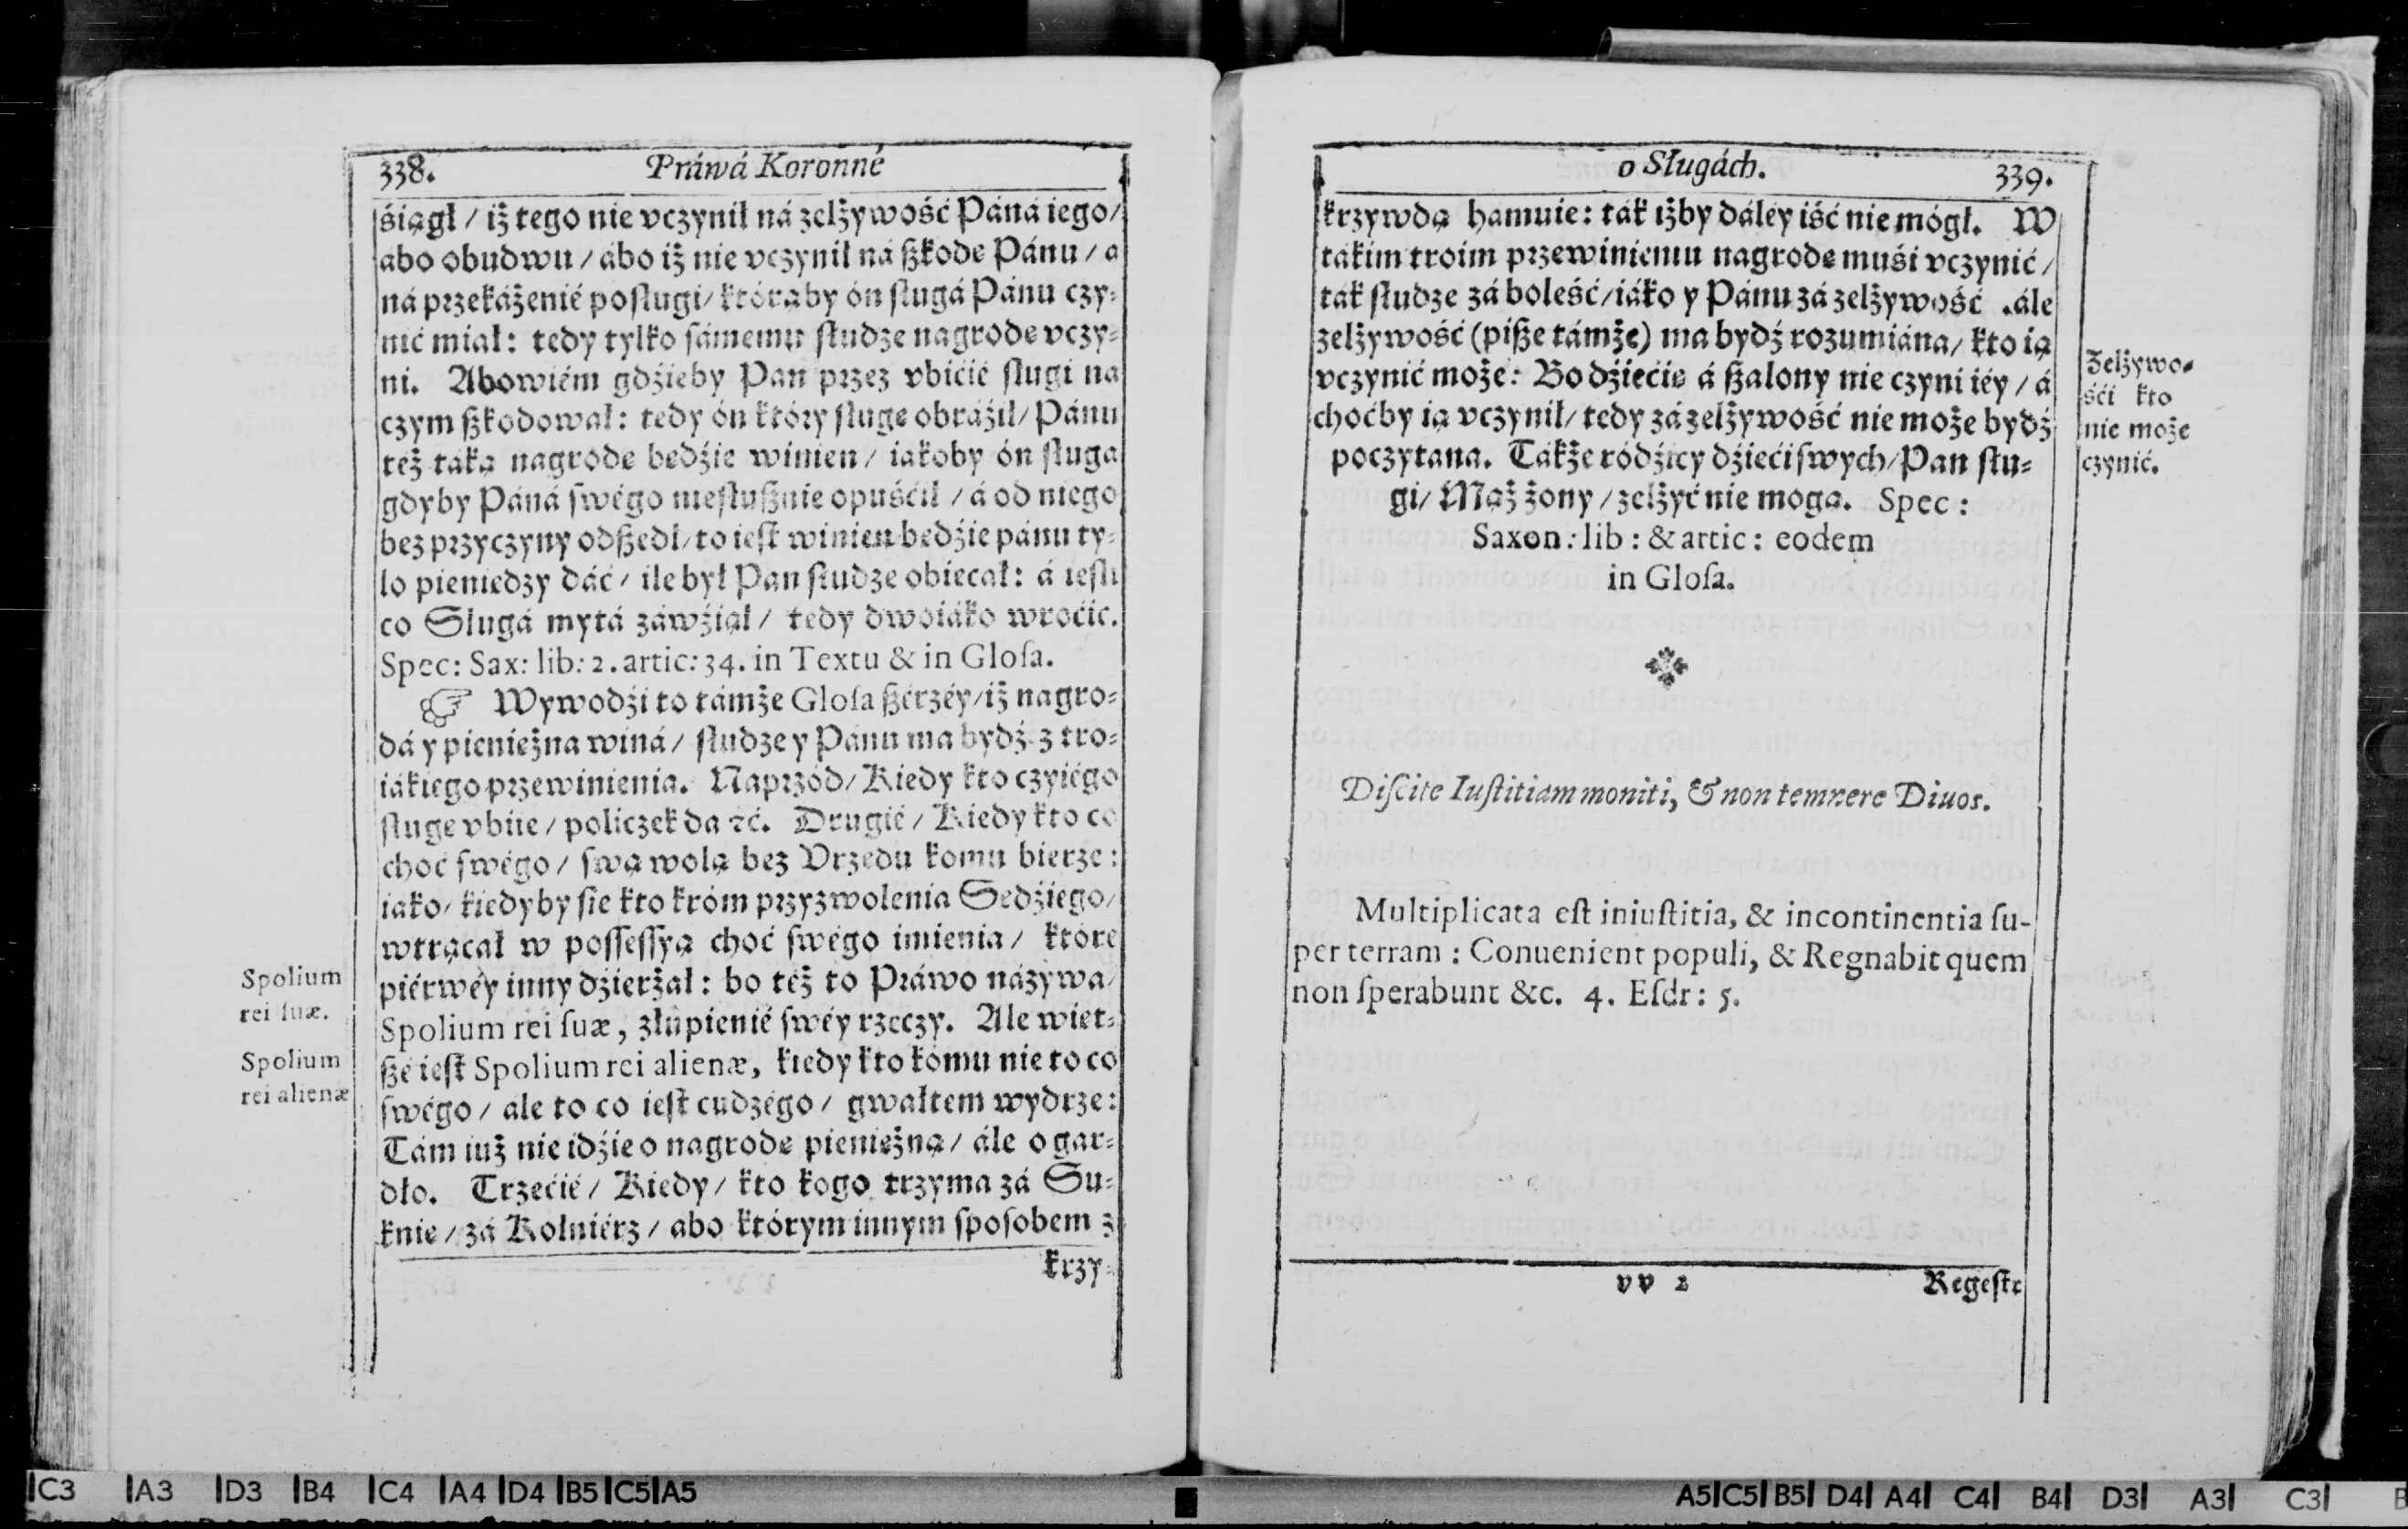 338. Práwá Koronné
śiągł / iż tego nie vczynił ná zelżywość Páná iego/
abo obudwu / ábo iż nie vczynił ná ßkode Pánu / a
ná przekáżenié posługi/ którąby ón sługá Pánu czy-
nić miał: tedy tylko sámemu słudze nagrode vczy-
ni. Abowiém gdźieby Pan przez vbićié sługi na
czym ßkodował: tedy ón który sługe obráźił/ Pánu
też taką nagrode bedźie winien / iakoby ón sługa
gdyby Páná swégo niesłußnie opuśćił / á od niego
bez przyczyny odßedł/ to iest winien bedźie pánu ty-
lo pieniedzy dáć / ile był Pan słudze obiecał: á iesli
co Sługá mytá záwźiął / tedy dwoiáko wroćic.
Spec: Sax: lib: 2. artic: 34. in Textu & in Glosa.
☞ Wywodźi to támże Glosa ßérzéy/ iż nagro-
dá y pienieżna winá / słudze y Pánu ma bydź z tro-
iákiego przewinienia. Naprzód/ Kiedy kto czyiégo
sługe vbiie / policzek da ꝛć. Drugié / Kiedy kto co
choć swégo / swą wolą bez Vrzedu komu bierze:
iako/ kiedyby sie kto króm przyzwolenia Sedźiego/
wtrącał w possessyą choć swégo imienia / które
piérwéy inny dźierżał: bo też to Práwo názywa/
Spolium rei suæ, złupienié swéy rzeczy. Ale wiet-
ßé iest Spolium rei alienæ, kiedy kto komu nie to co
swégo / ale to co iest cudzégo / gwałtem wydrze:
Tám iuż nie idźie o nagrode pienieżną / ále o gar-
dło. Trzećié / Kiedy / kto kogo trzyma zá Su-
knie / zá Kołniérz / abo którym innym sposobem z
krzy-
Spolium
rei suæ.
Spolium
rei alienæ
o Sługách. 339.
krzywdą hamuie: ták iżby dáléy iść nie mógł. W
tákim troim przewinieniu nagrode muśi vczynić /
ták słudze zá boleść / iáko y Pánu zá zelżywość . ále
zelżywość (piße támże) ma bydź rozumiána / kto ią
vczynić może: Bo dźiećie á ßalony nie czyni iéy / á
choćby ią vczynił/ tedy zá zelżywość nie może bydź
poczytana. Tákże ródźicy dźieći swych/ Pan słu-
gi/ Mąż żony / zelżyć nie mogą. Spec :
Saxon: lib : & artic : eodem
in Glosa.
Zelżywo-
śći kto
nie może
czynić.
Discite Iustitiam moniti, & non temnere Diuos.
Multiplicata est iniustitia, & incontinentia su-
per terram : Conuenient populi, & Regnabit quem
non sperabunt &c. 4. Esdr: 5.
vv 2 Regestr
C3 A3 D3 B4 C4 A4 D4 B5 C5 A5
A5 C5 B5 D4 A4 C4 B4 D3 A3 C3